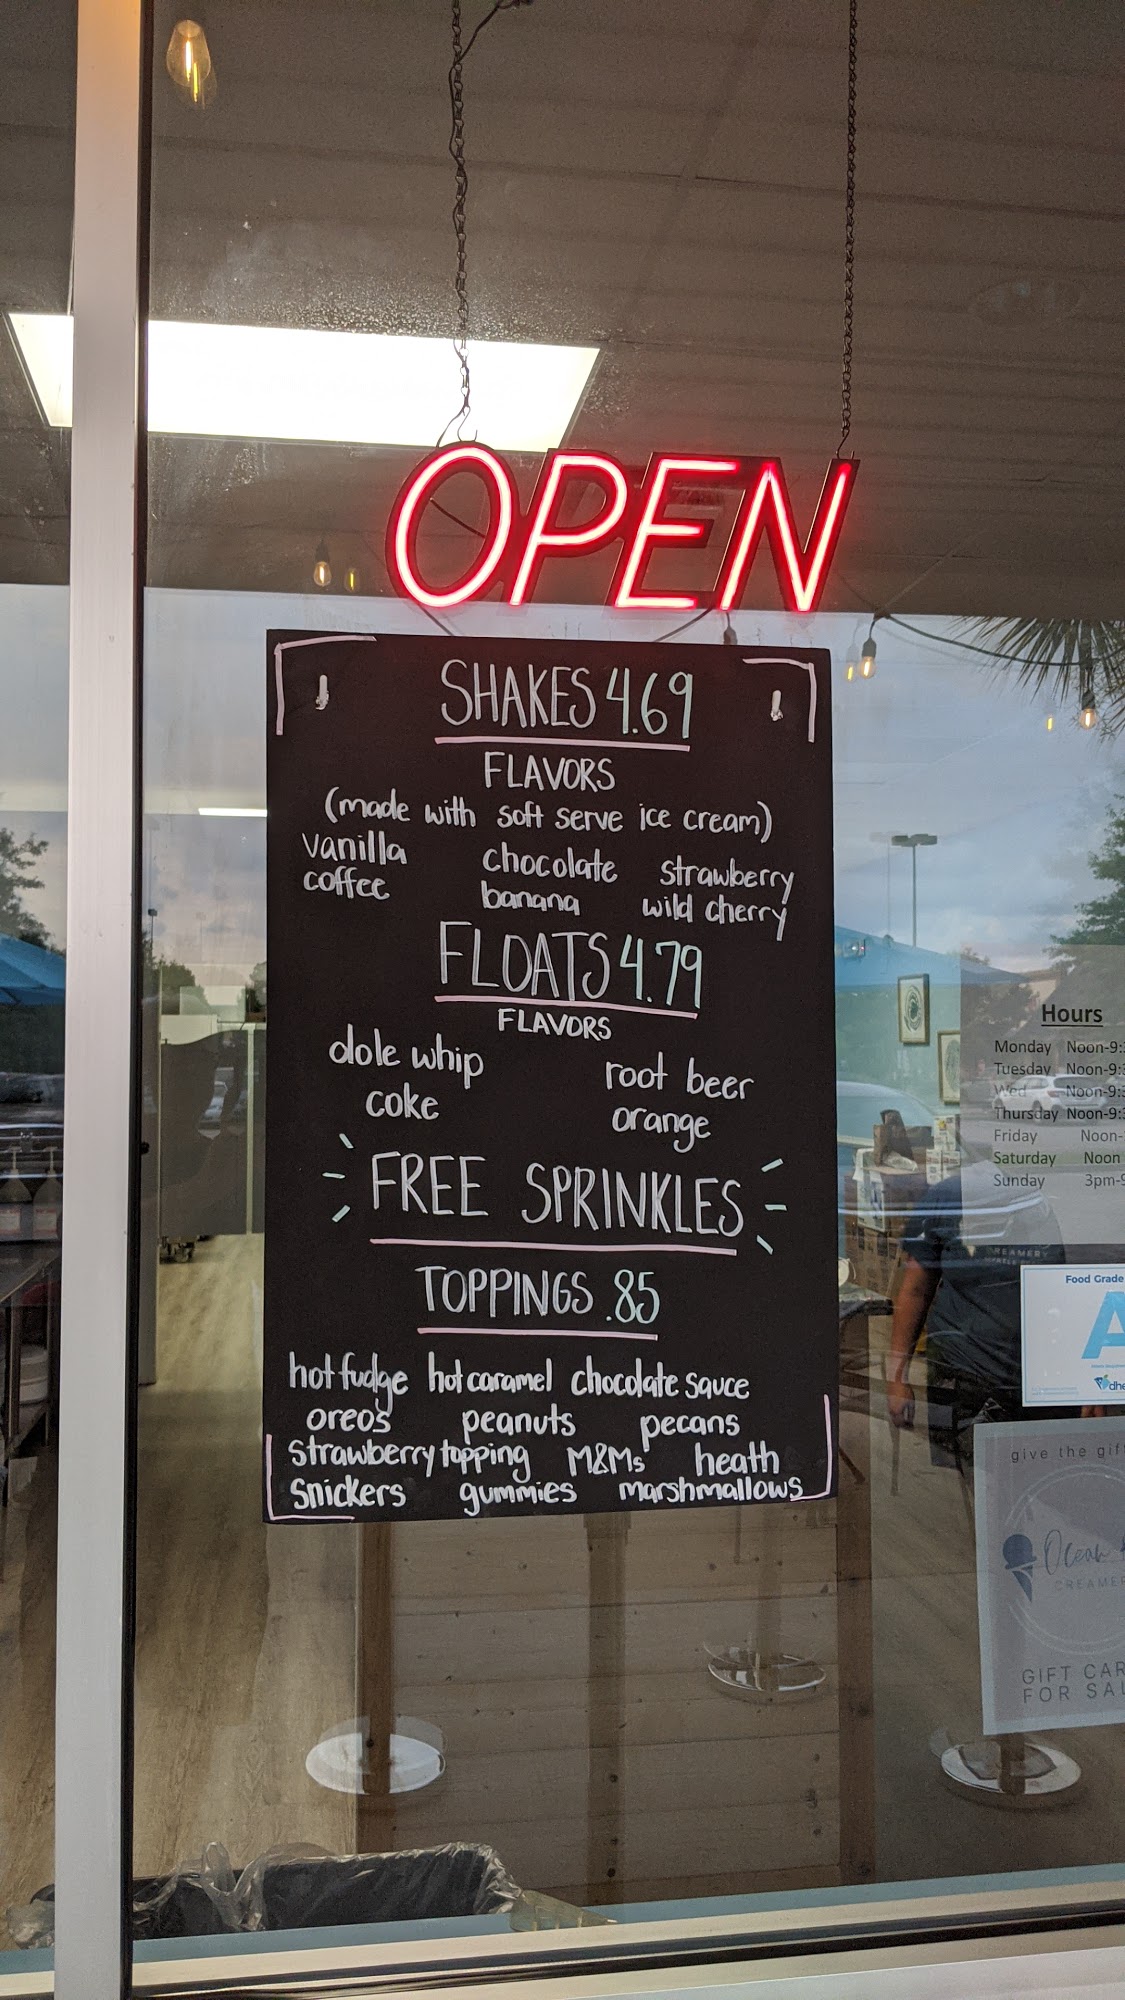 OPEN
SHAKES 4.69
FLAVORS
(made with soft serve ice cream)
vanilla chocolate strawberry
coffee banana wild cherry
FLOATS 4.79
FLAVORS
dole whip root beer
coke orange
FREE SPRINKLES
TOPPINGS .85
hot fudge hot caramel chocolate sauce
oreos peanuts pecans
strawberry topping M&Ms heath
Snickers gummies marshmallows
Hours
Monday Noon-9:
Tuesday Noon-9:
Wed Noon-9:
Thursday Noon-9:
Friday Noon-
Saturday Noon
Sunday 3pm-
CREAMERY
Food Grade
A
give the
Ocean
FOR